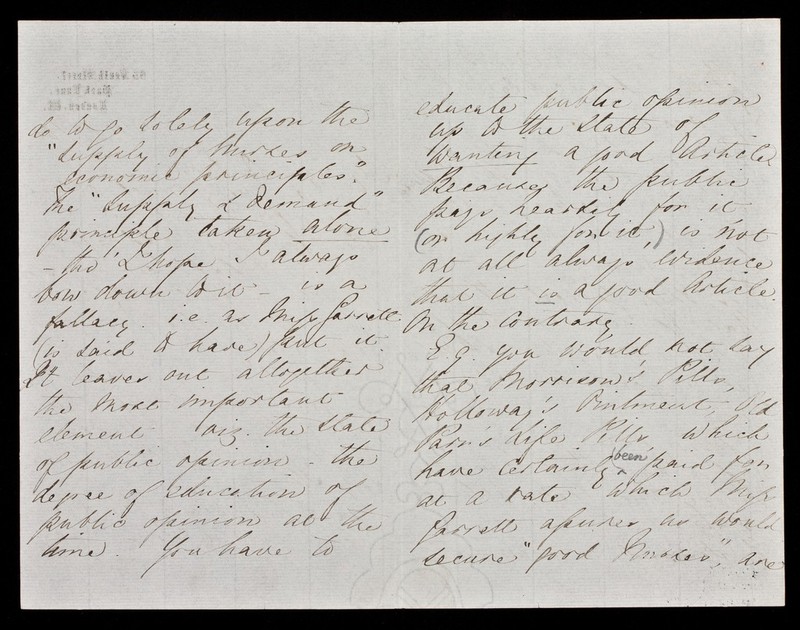 do to go solely upon the
"supply of Nurses on
economic principles".
The "Supply & Demand"
principle taken alone
- tho' I hope I always
bow down to it - is a
fallacy. i.e. as Miss Garrett
(is said to have) put it.
It leaves out altogether
the most important
element viz. the state
of public opinion - the
degree of education of
public opinion at the
time. You have to
educate public opinion
up to the state of
wanting a good Article.
Because the public
pays heartily for it
(or highly for it,) is not
at all always evidence
that it is a good Article.
On the contrary.
E.g. you would not say
that Morrison's Pills,
Holloway's Ointment, Old
Parr's Life Pills, which
have certainly been paid for
at a rate which Miss
Garrett assures us would
secure "good Nurses", are